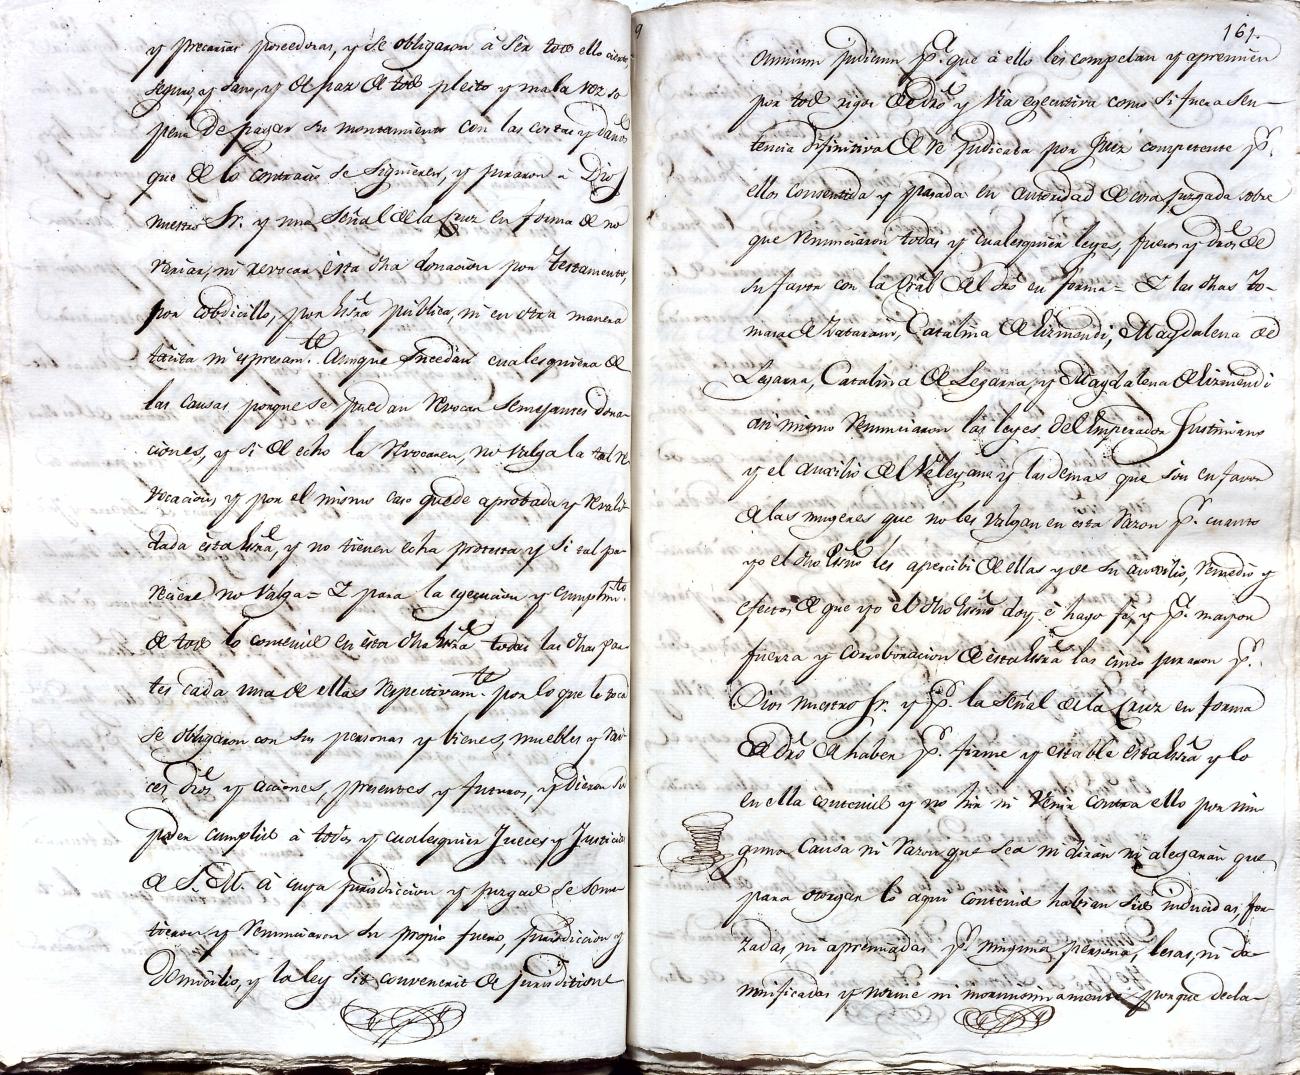 y precarias poseedoras, y se obligaron á ser todo ello cierto,
seguro, y sano, y de paz de todo pleito y mala voz so
pena de pagar su montamiento con las costas y daños
que de lo contrario se siguieren, y juraron a Dios
nuestro Sr. y una Señal de la Cruz en forma de no
variar, ni revocar esta dha donacion por testamento,
por cobdicillo, por Essra publica, ni en otra manera
tacita ni espresamte. Aunque sucedan cualesquiera de
las causas porque se puedan revocar semejantes dona-
ciones, y si de echo la revocaren, no valga la tal re-
vocacion, y por el mismo caso quede aprobada y revali-
dada esta Essra, y no tienen echa protesta y si tal pa-
reciere no valga = Y para la egecucion y cumplimto.
de todo lo contenido en esta dha Essra todas las dhas par-
tes cada una de ellas respectivamte. por lo que le toca
se obligaron con sus personas y bienes, muebles y rai-
ces dros y acciones, presentes y futuros, y dieron su
poder cumplido á todos y cualesquier Jueces y Justicias
de S. M. á cuya jurisdiccion y juzgado se some-
tieron y renunciaron su propio fuero, jurisdiccion y
Domicilio, y la ley sit convenerit de jurisditione
161.
omnium judicum pa. que á ello les compelan y apremien
por todo rigor de dro y via egecutiva como si fuera sen-
tencia difinitiva de Juez competente pr.
ellos consentida y pasada en autoridad de cosa juzgada sobre
que renunciaron todas y cualesquier leyes, fueros y dros de
su favor con la gral del dro en forma = Y las dhas To-
masa de Catalina de Lizmendi, Magdalena de
Legarra, Catalina de Legarra, y Magdalena de Lizmendi
asi mismo renunciaron las leyes del Emperador Justiniano
y el auxilio del Veleyano y las demas que son en favor
de las mugeres que no les valgan en esta razon pr. cuanto
yo el dho Essno les apercibi de ellas y de su auxilio, remedio y
efectos de que yo el dho Essno doy é hago fe, y pa. mayor
fuerza y corroboracion de esta Essra las cinco juraron pr.
Dios nuestro Sr. y pr. la Señal de la Cruz en forma
de dro de haber pr. firme y estable esta Essra y lo
en ella contenido y no hir ni venir contra ello por nin
guna causa ni razon que sea ni dirán ni alegarán que
para otorgar lo aqui contenido habian sido inducidas, for-
zadas, ni apremiadas pr. ninguna persona, lesas, ni da-
mnificadas y norme ni ynormisimamente, porque decla-